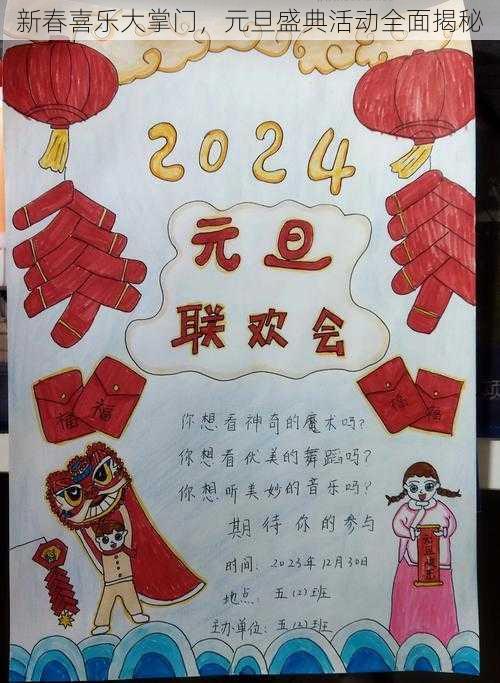 新春喜乐大掌门，元旦盛典活动全面揭秘
2024
元旦
联欢会
福 福
福 福
你想看神奇的魔术吗?
你想看优美的舞蹈吗?
你想听美妙的音乐吗?
期待你的参与
时间: 2023年12月30日
地点: 五(2)班
主办单位: 五(2)班